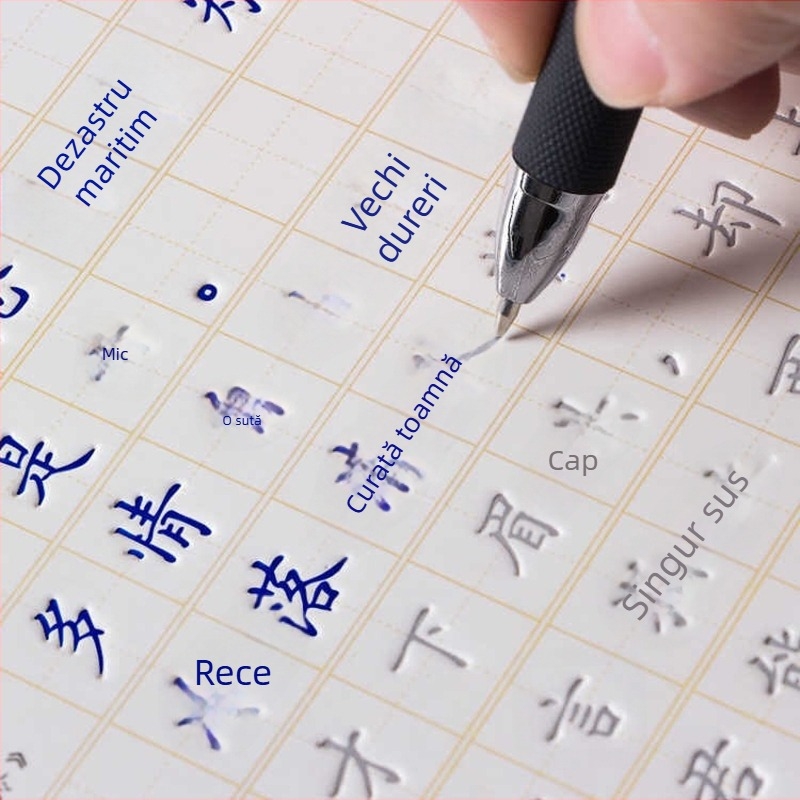 Dezastru
maritim
Vechi
dureri
却
。
Mic
O sută
Curată toamnă
Cap
，
是
情
眉
Singur sus
落
多
下
Rece
言
能
才
君